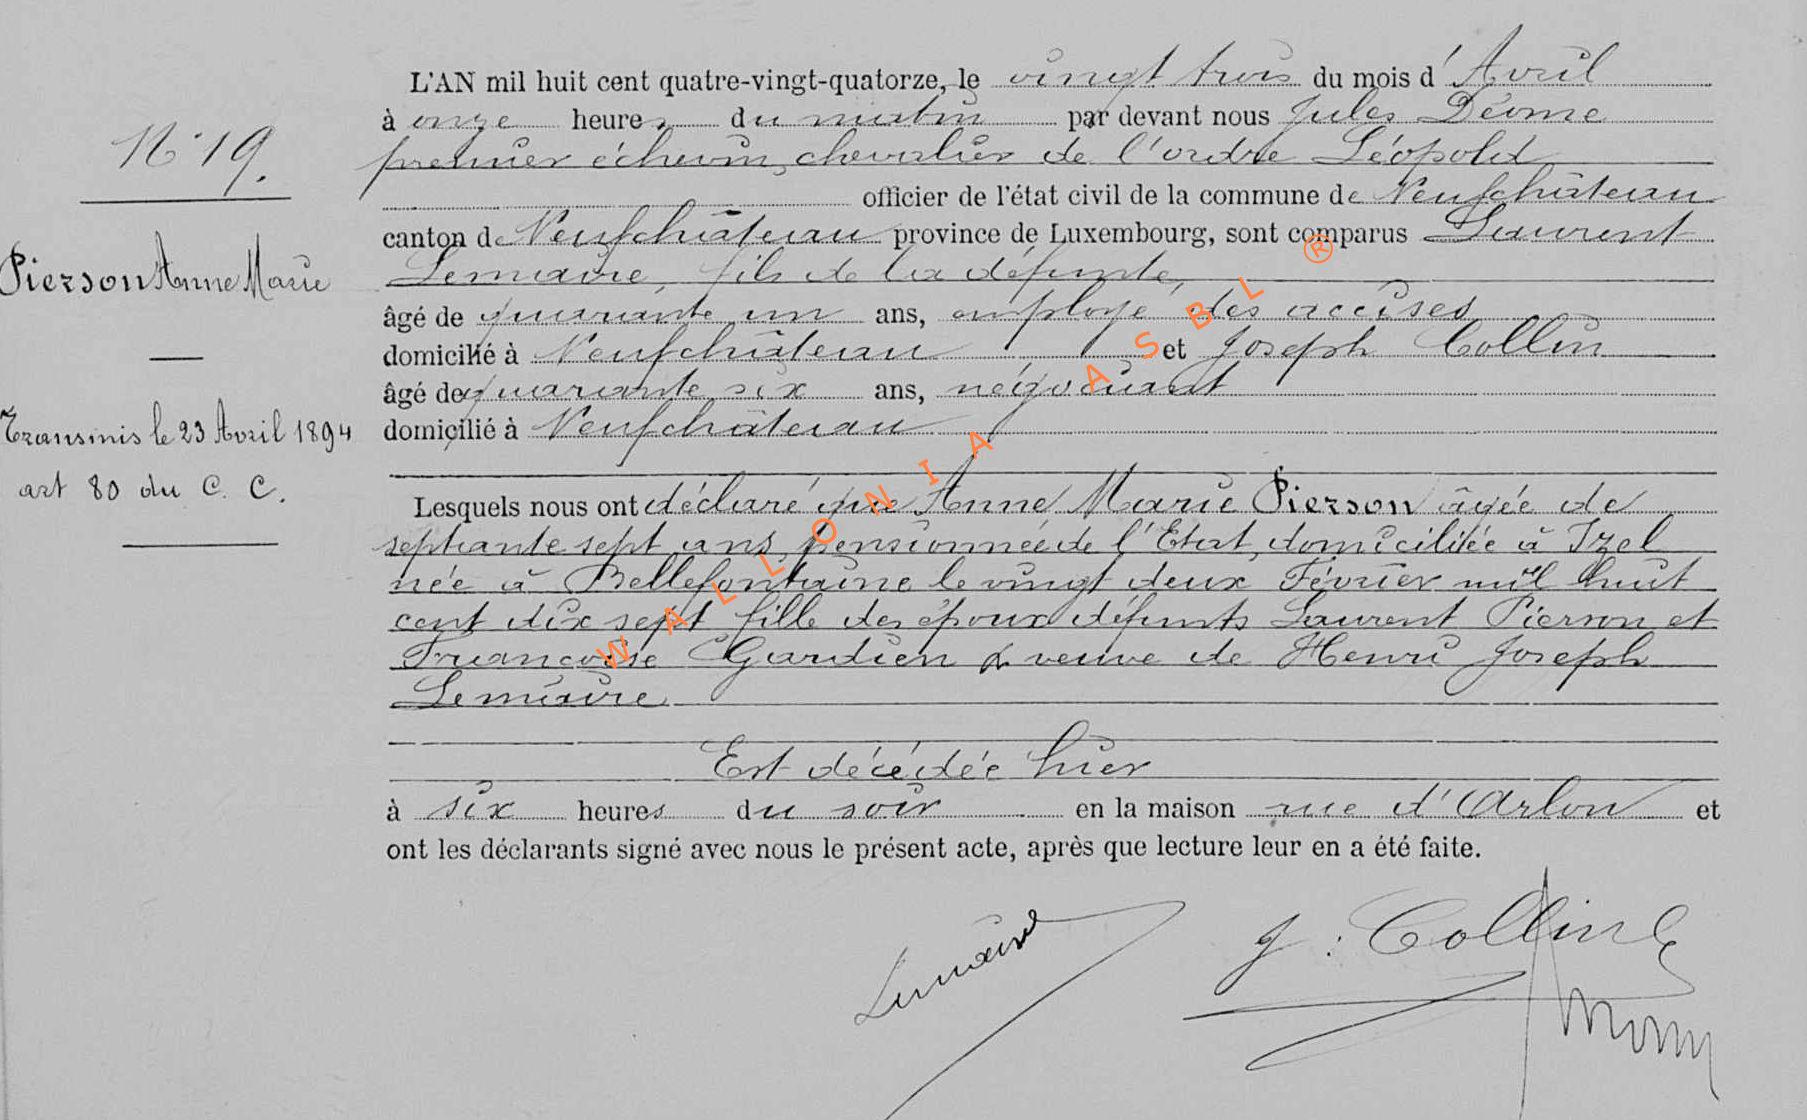 N° 19.
Pierson Anne Marie
Transmis le 23 Avril 1894
art 80 du C. C.
L'AN mil huit cent quatre-vingt-quatorze, le vingt trois du mois d'Avril
à onze heures du matin par devant nous Jules Déome
premier échevin, chevalier de l'ordre Léopold
officier de l'état civil de la commune de Neufchâteau
canton de Neufchâteau province de Luxembourg, sont comparus Laurent
Lemaire, fils de la défunte,
âgé de quarante un ans, employé des accises
domicilié à Neufchâteau et Joseph Collin
âgé de quarante six ans, négociant
domicilié à Neufchâteau
Lesquels nous ont déclaré que Anne Marie Pierson âgée de
septante sept ans, pensionnée de l'Etat, domiciliée à Izel
née à Bellefontaine le vingt deux Février mil huit
cent dix sept fille des époux défunts Laurent Pierson et
Françoise Gardien & veuve de Henri Joseph
Lemaire
Est décédée hier
à six heures du soir en la maison rue d'Arlon et
ont les déclarants signé avec nous le présent acte, après que lecture leur en a été faite.
Lemaire
J: Collin
WALLONIA ASBL ®